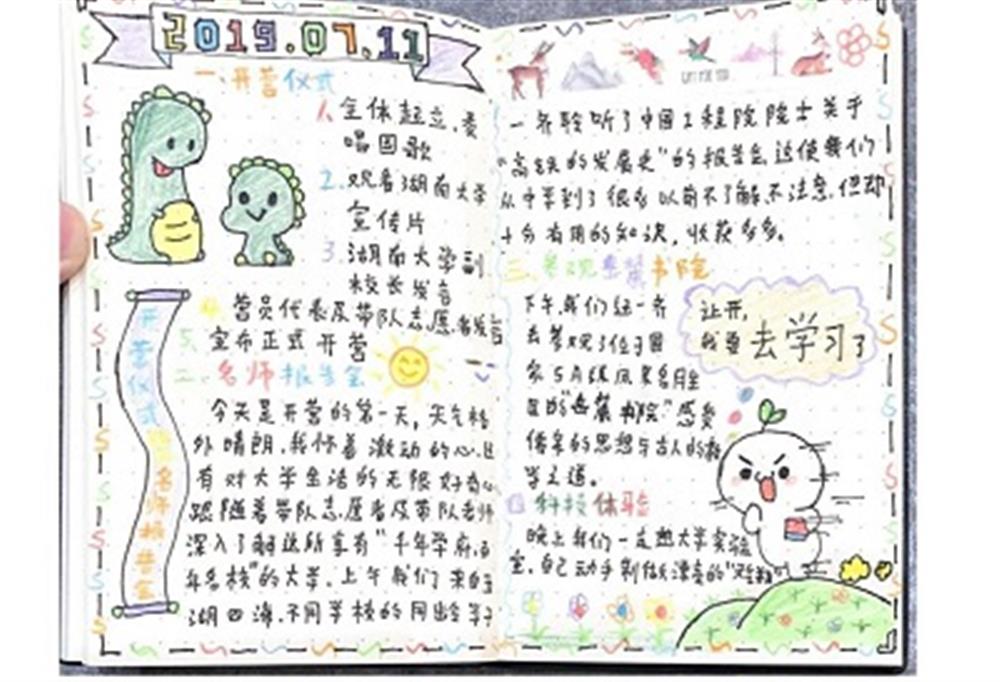 2019.07.11
一.开营仪式
1.全体起立、奏
唱国歌
2.观看湖南大学
宣传片
3.湖南大学副
校长发言
4.营员代表及带队志愿者发言
5.宣布正式开营
二.名师报告会
开营仪式
名师报告会
今天是开营的第一天,天气格
外晴朗,我怀着激动的心
有对大学生活的无限好奇心
跟随着带队志愿者及带队老师
深入了解这所享有"千年学府,百
年名校"的大学。上午我们来自五
湖四海、不同学校的同
一齐聆听了中国工程院院士关于
"高铁的发展史"的报告会,这使我们
从中学到了很多以前不了解、不注意,但却
十分有用的知识,收获多多。
三.参观岳麓书院
下午,我们一齐
去参观了位于国
家5A级风景名胜
区的"岳麓书院"感受
儒家的思想与古人的
学之道。
让开,
我要去学习了
四.科技体验
晚上我们一走进大学实验
室,自己动手制做漂亮的"